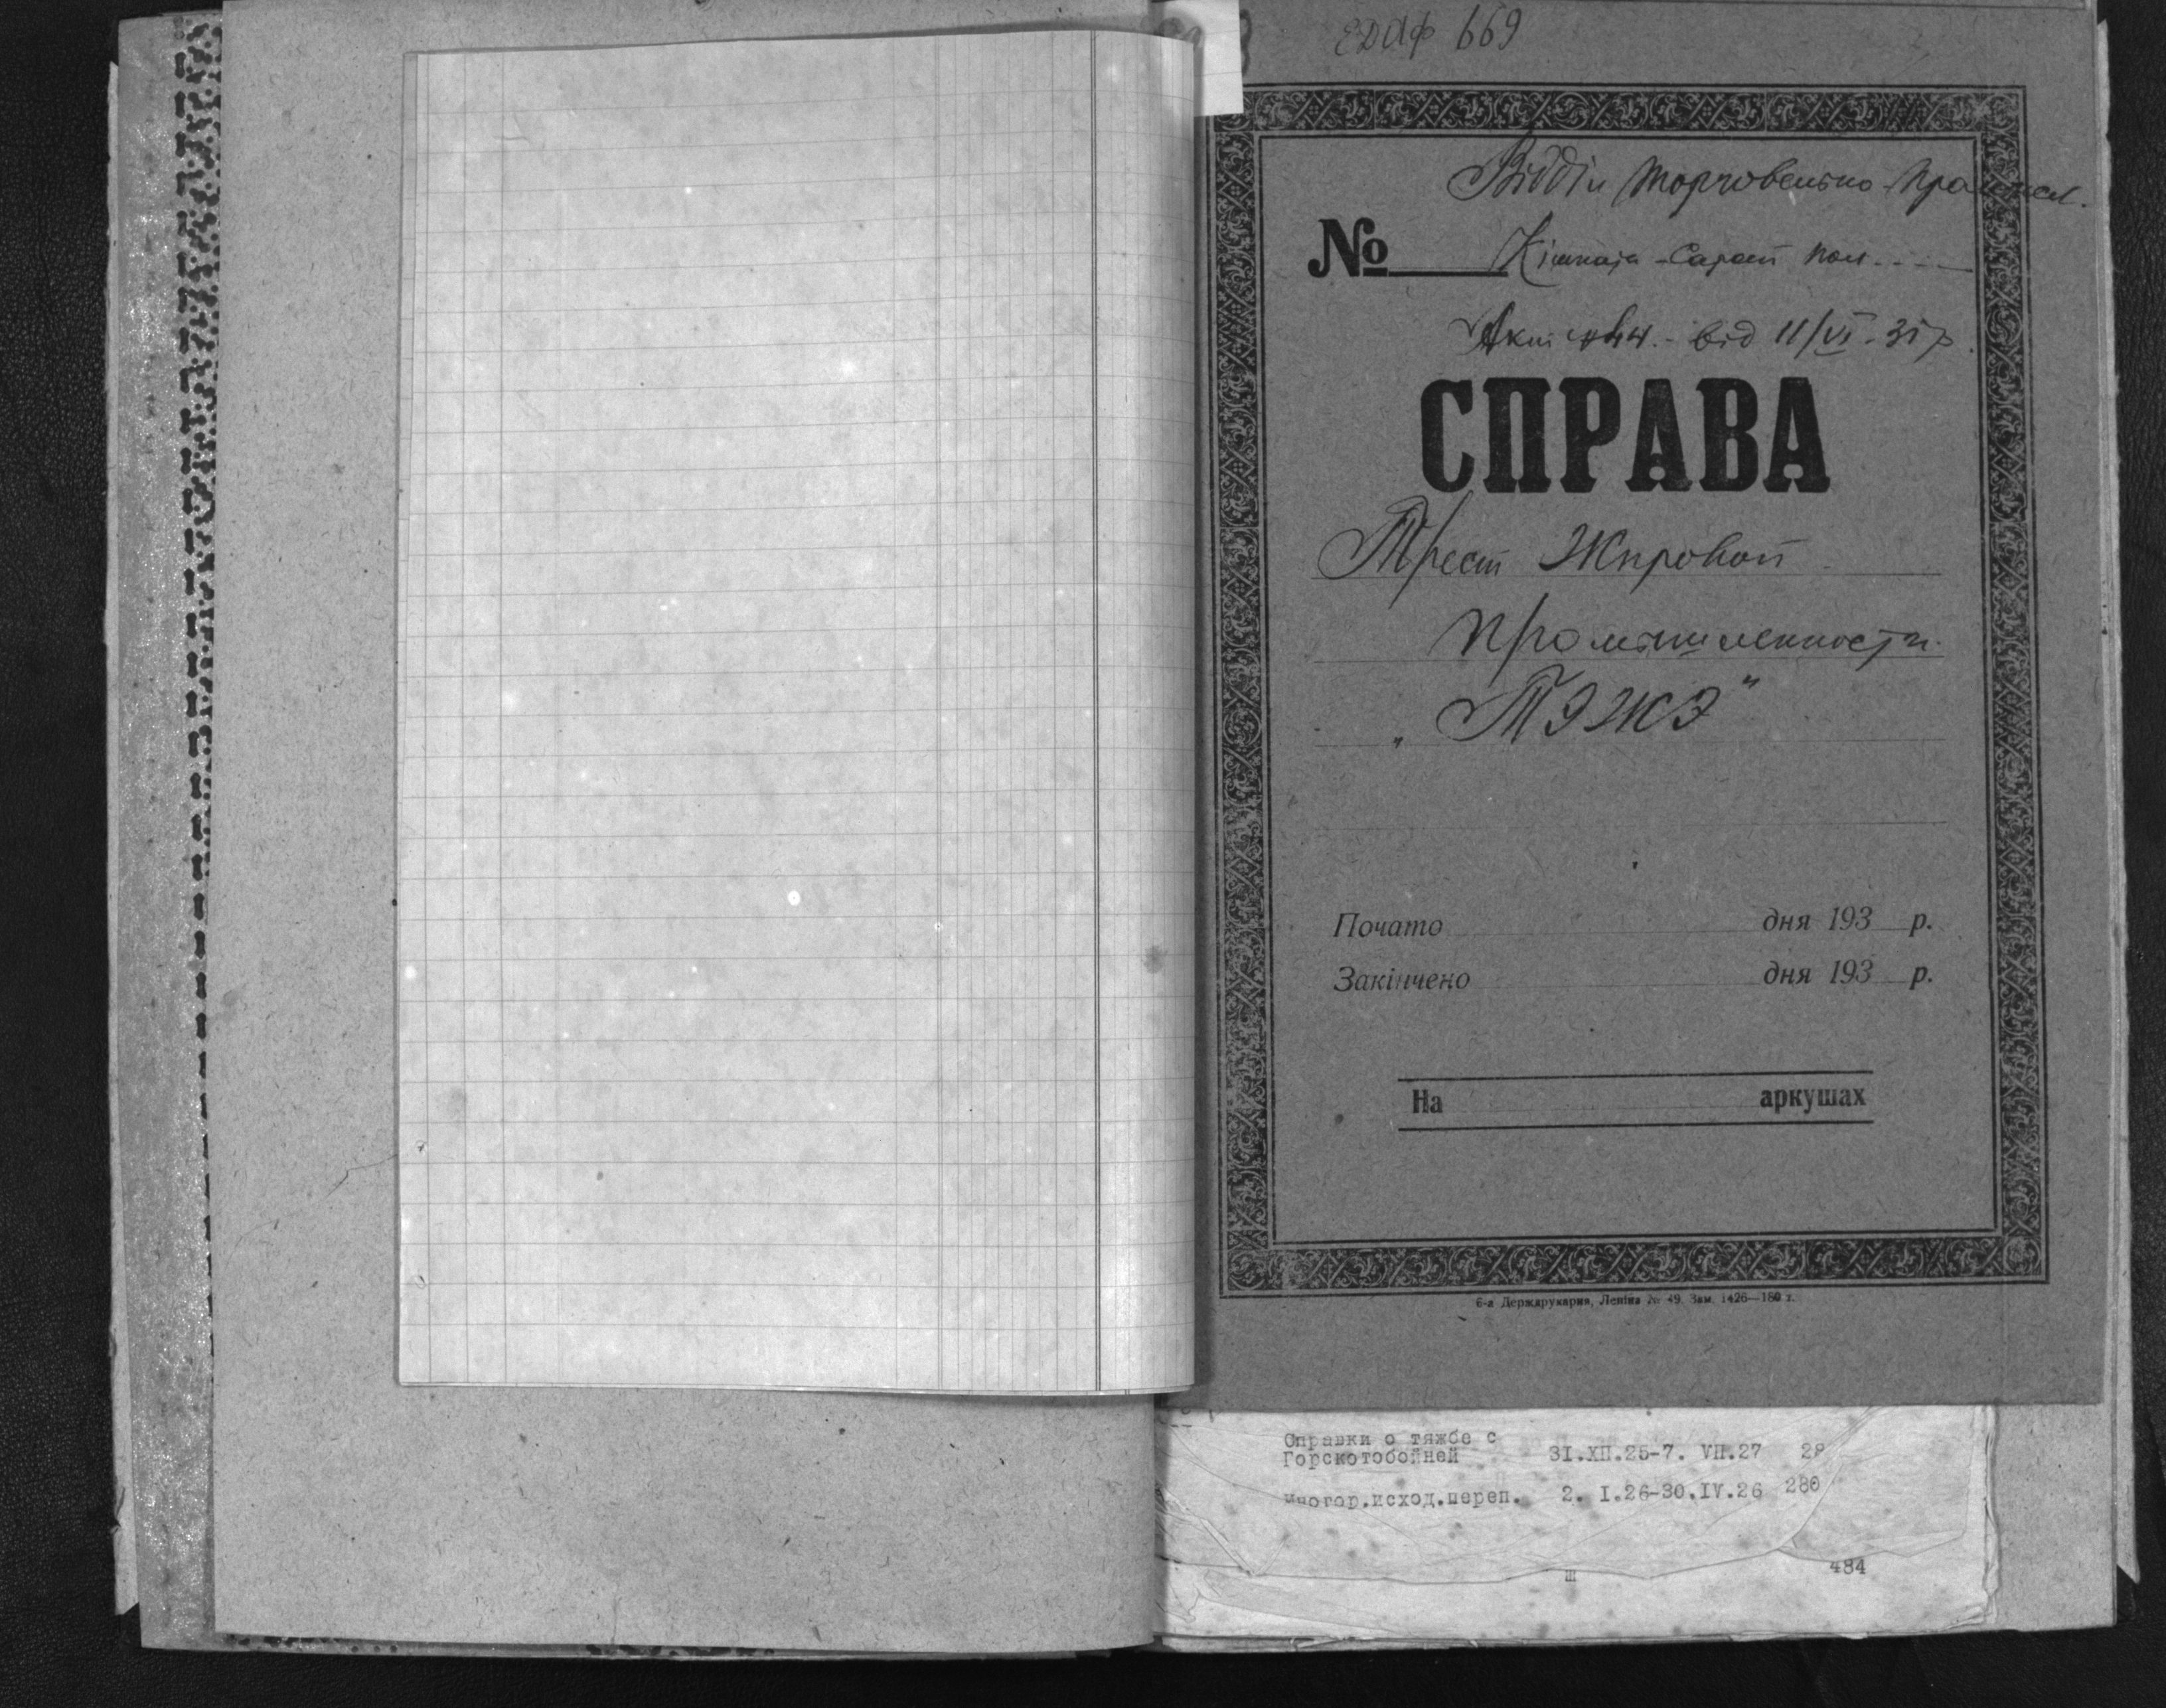 ЕДАФ 669
Відділ торговельно-промисл.
№
Акт №44.- від 11/VI-31 р.
СПРАВА
Трест Жировой
промышленности.
„ТЭЖЭ"
Почато дня 193 р.
Закінчено дня 193 р.
На аркушах
6-а Держдрукарня, Леніна № 49. Зам. 1426—180 т.
Справки о тяжбе с
Горскотобойней 31.ХП.25-7. УП.27 28
иногор.исход.переп. 2. I.26-30.IУ.26 280
484
ш